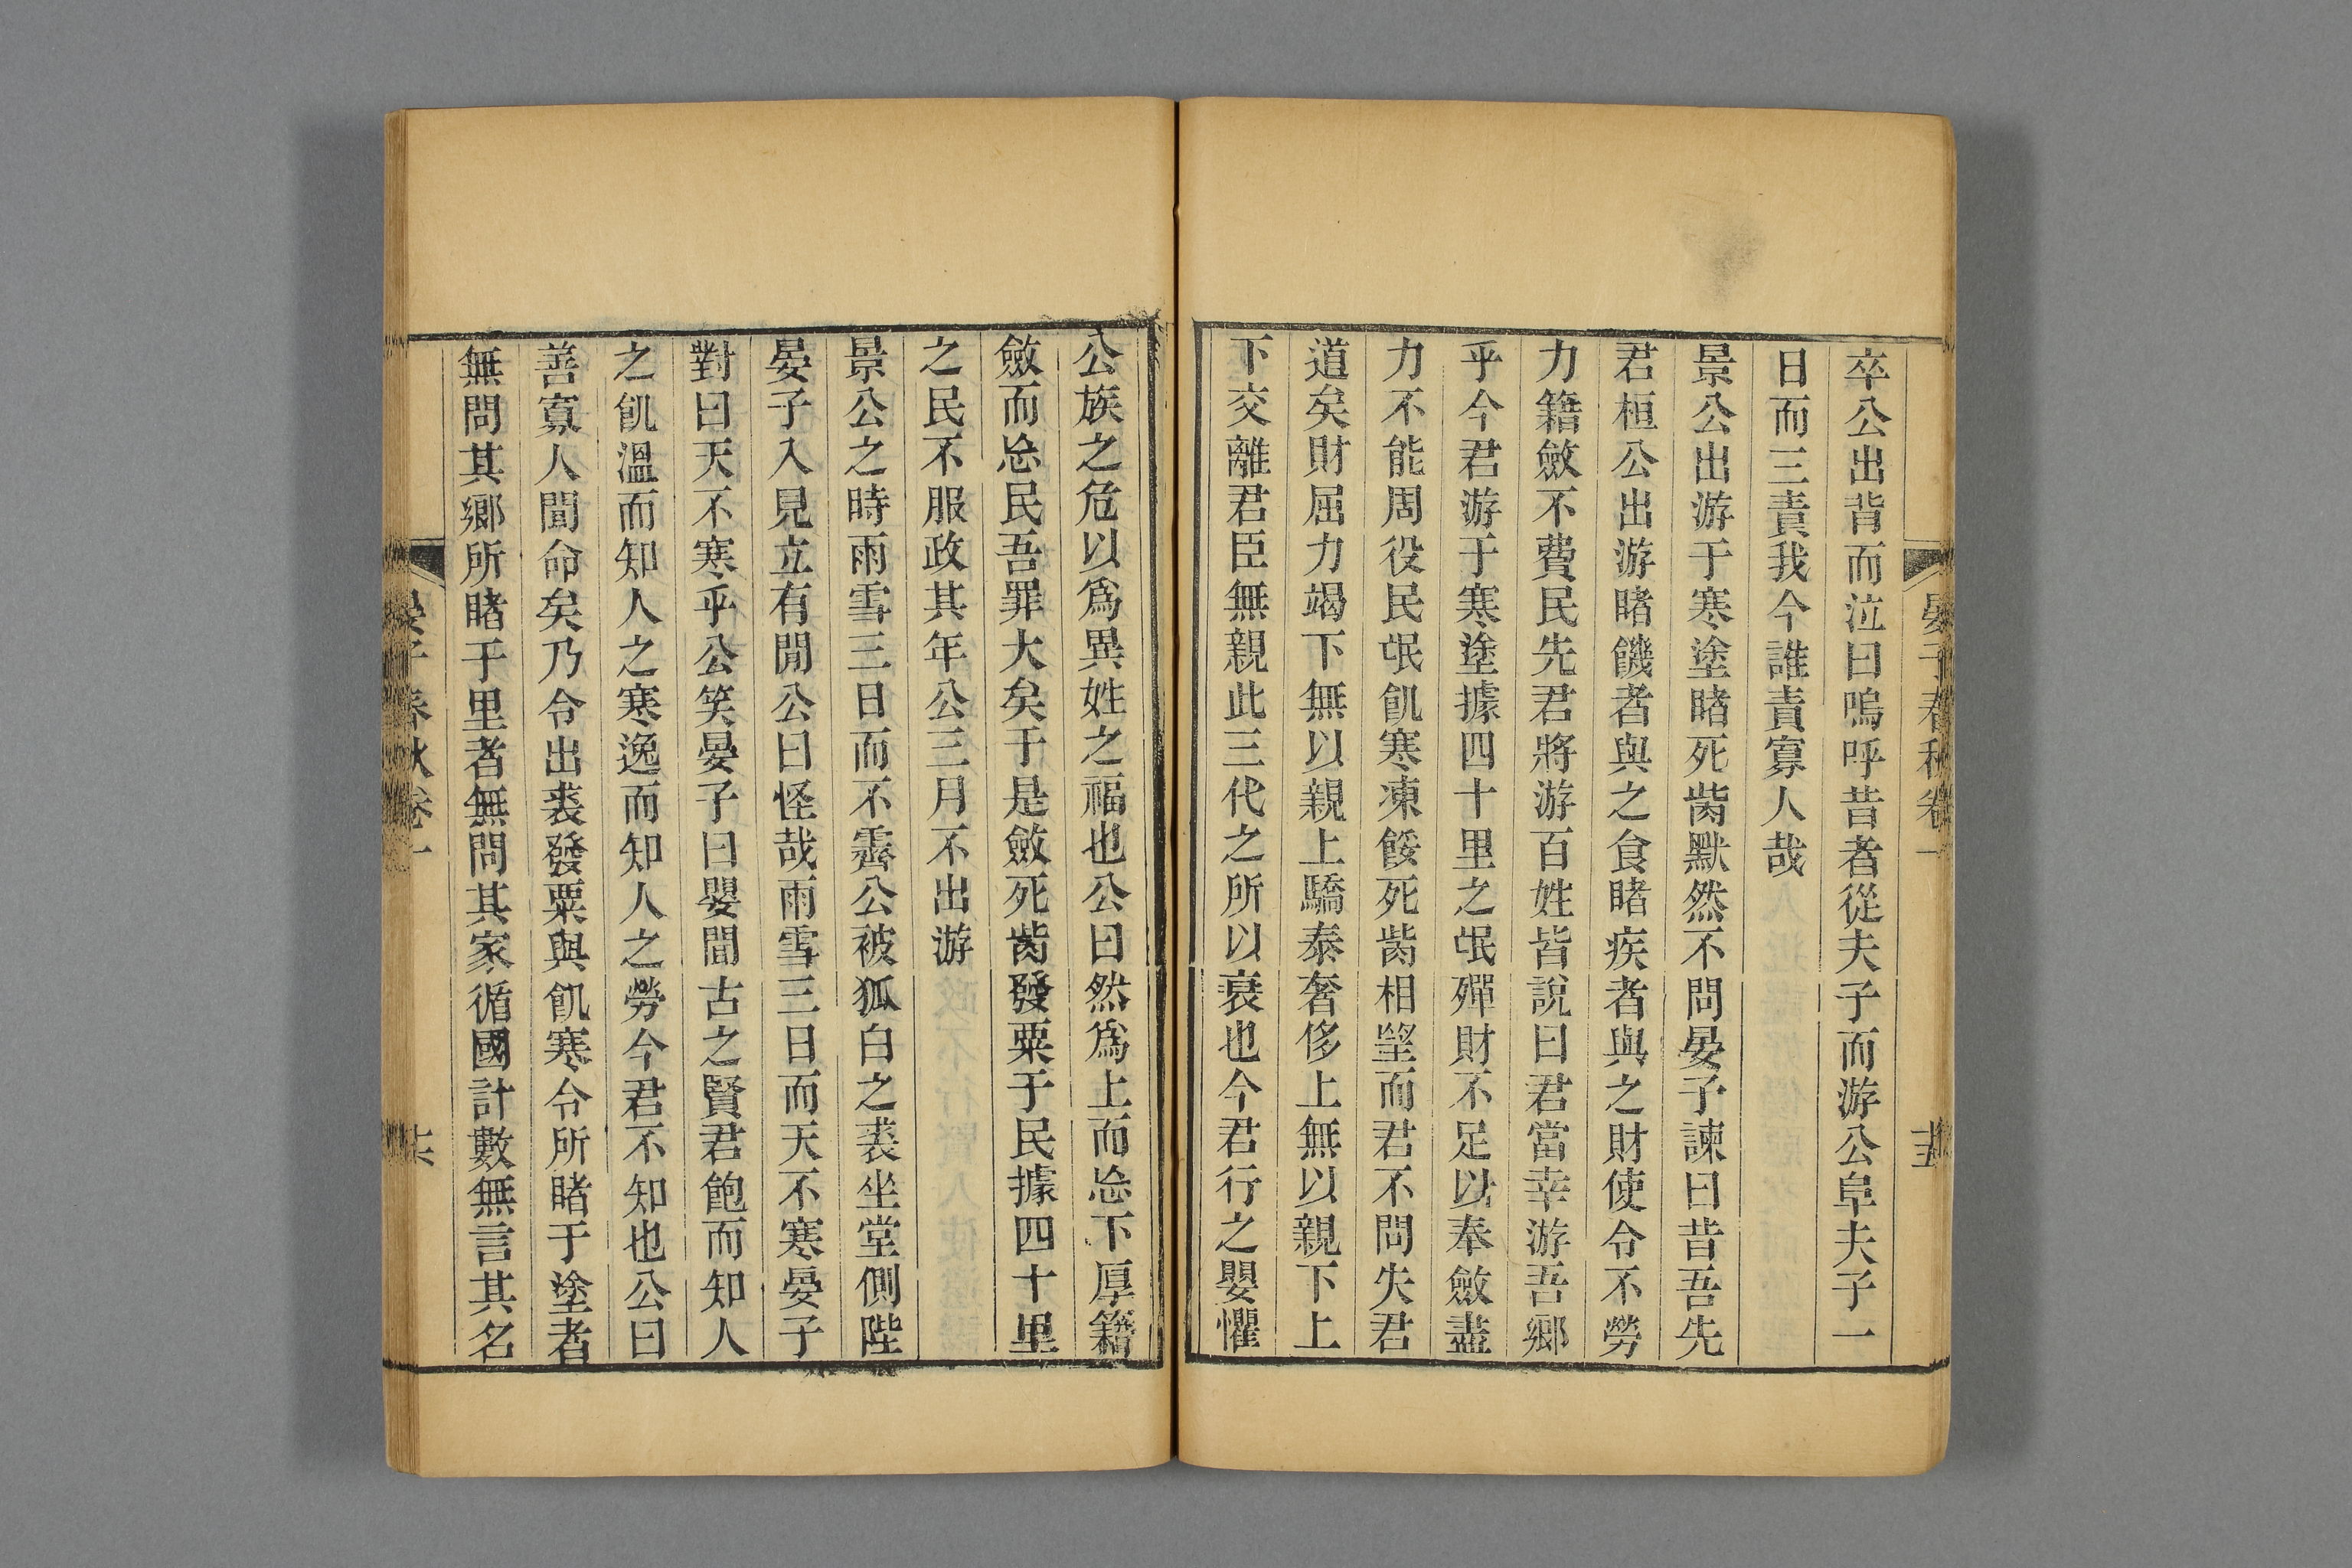 晏子春秋卷一
十五
卒公出背而泣曰嗚呼昔者從夫子而游公阜夫子一
日而三責我今誰責寡人哉
景公出游于寒塗睹死胔默然不問晏子諫曰昔吾先
君桓公出游睹饑者與之食睹疾者與之財使令不勞
力籍斂不費民先君將游百姓皆說曰君當幸游吾鄉
乎今君游于寒塗據四十里之氓殫財不足以奉斂盡
力不能周役民氓飢寒凍餒死胔相望而君不問失君
道矣財屈力竭下無以親上驕泰奢侈上無以親下上
下交離君臣無親此三代之所以衰也今君行之嬰懼
公族之危以爲異姓之福也公曰然爲上而忘下厚籍
斂而忘民吾罪大矣于是斂死胔發粟于民據四十里
之民不服政其年公三月不出游
景公之時雨雪三日而不霽公被狐白之裘坐堂側陛
晏子入見立有閒公曰怪哉雨雪三日而天不寒晏子
對曰天不寒乎公笑晏子曰嬰聞古之賢君飽而知人
之飢溫而知人之寒逸而知人之勞今君不知也公曰
善寡人聞命矣乃令出裘發粟與飢寒令所睹于塗者
無問其鄉所睹于里者無問其家循國計數無言其名
晏子春秋卷一